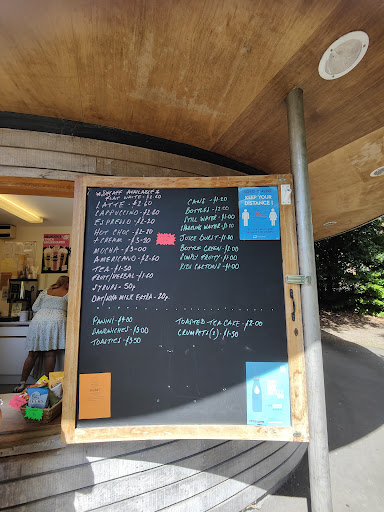 * DECAFF AVAILABLE *
FLAT WHITE - £2.60
LATTE - £2.60
CAPPUCCINO - £2.60
ESPRESSO - £2.00
HOT CHOC - £2.60
+ CREAM - £3.50
MOCHA - £3.00
AMERICANO - £2.60
TEA - £1.50
FRUIT/HERBAL - £1.60
SYRUP - 50p
OAT/NON MILK EXTRA - 20p.
PANINI - £4.00
SANDWICHES - £3.00
TOASTIES - £3.50
CANS - £1.20
BOTTLES - £2.00
STILL WATER - £1.00
SPARKLING WATER - £1.00
JUICE BURST - £1.80
BOTTLE GREEN - £1.80
SIMPLY FRUITY - £1.00
KIDS CARTONS - £1.00
TOASTED TEA CAKE - £2.00
CRUMPETS (2) - £1.50
KEEP YOUR
DISTANCE!